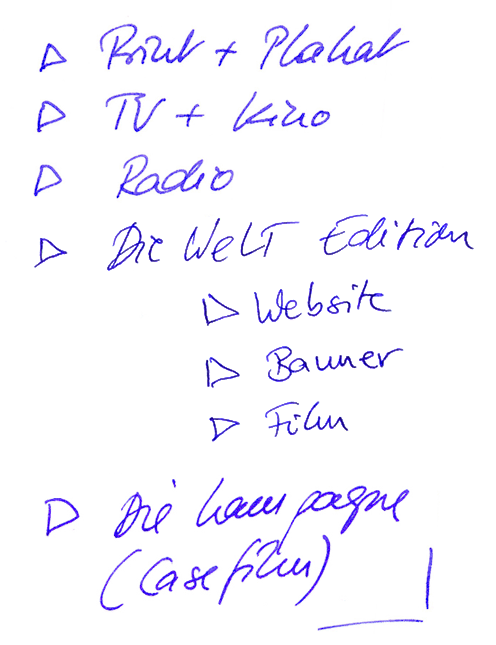 ▷ Print + Plakat
▷ TV + Kino
▷ Radio
▷ Die WeLT Edition
▷ Website
▷ Banner
▷ Film
▷ Die Kampagne
(Casefilm)